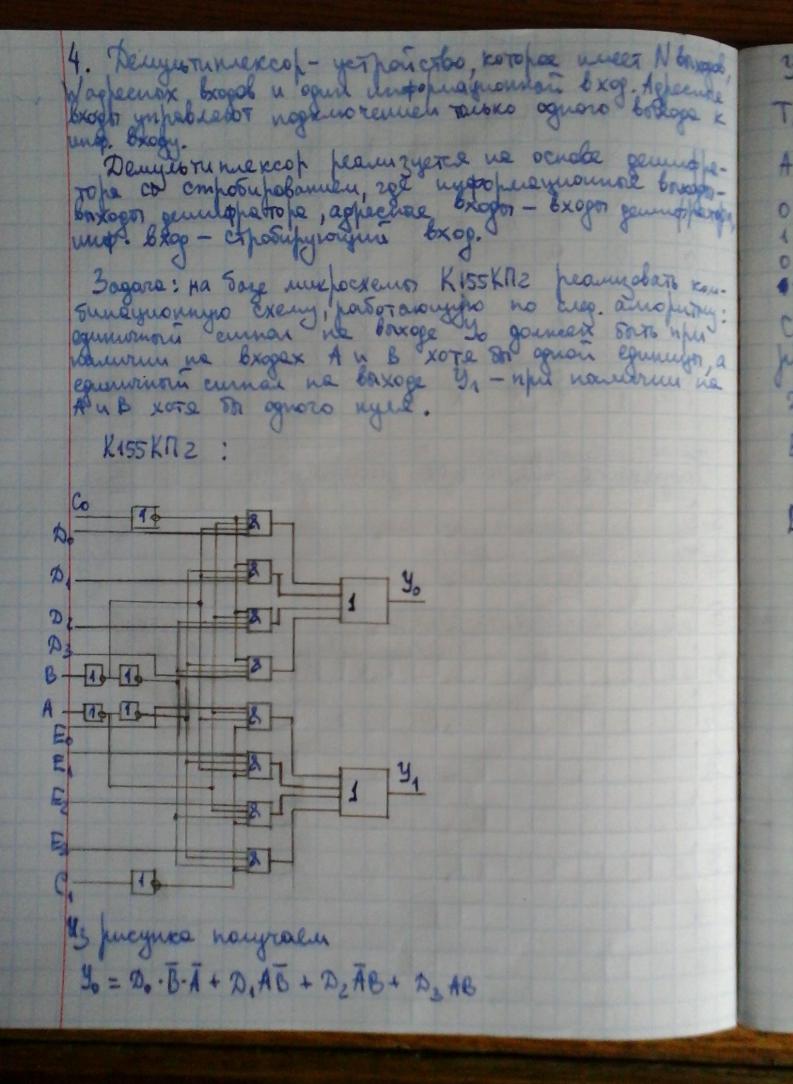 4. Демультиплексор - устройство, которое имеет N выходов,
адресных входов и один информационный вход. Адресные
входы управляют подключением только одного выхода к
инф. входу.
Демультиплексор реализуется на основе дешифра-
тора со стробированием, где информационные выходы-
выходы дешифратора, адресные входы - входы дешифратора,
инф. вход - стробирующий вход.
Задача: на базе микросхемы К155КП2 реализовать ком-
бинационную схему, работающую по след. алгоритму:
единичный сигнал на выходе У₀ должен быть при
наличии на входах А и В хотя бы одной единицы, а
единичный сигнал на выходе У₁ - при наличии на
А и В хотя бы одного нуля.
К155КП2 :
C₀ 1 &
D₀
D₁ & У₀
1
D₂ &
D₃
B 1 1 &
A 1 1 &
E₀
E₁ & У₁
1
E₂ &
E₃ &
C₁ 1
Из рисунка получаем
У₀ = D₀·B̅·A̅ + D₁AB̅ + D₂A̅B + D₃AB
У
Т
А
0
1
0
С